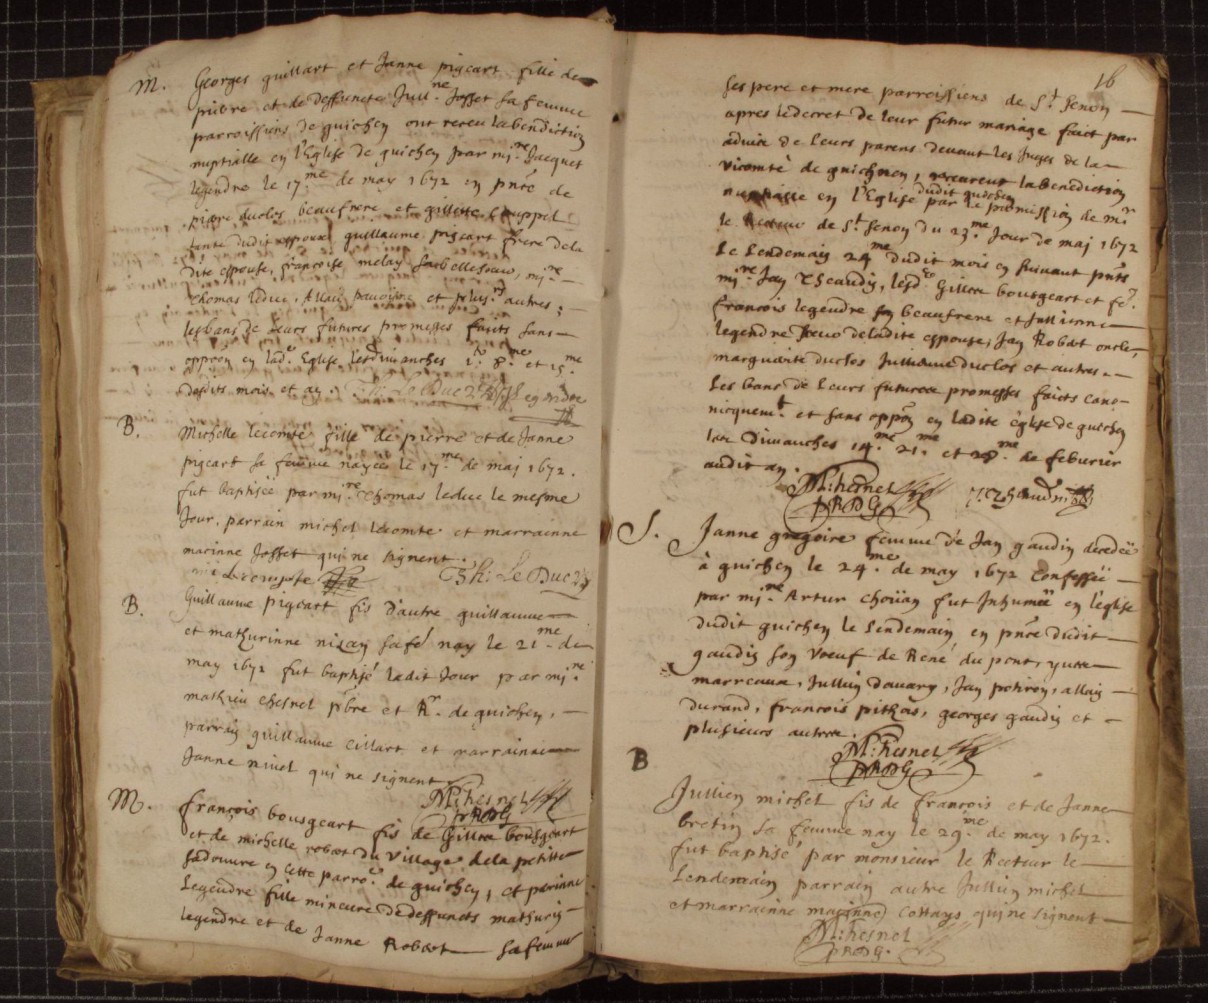 M. Georges guillart et Janne pigeart fille de
pierre et de deffuncte Jull.ne Josset sa femme
parroissiens de guichen ont receu la benediction
nuptialle en l'Eglise de guichen par mi.re Jacques
legendre le 17.me de may 1672 en pnce de
pierre duclos beaufrere et gillette
dudit espoux guillaume pigeart frere de la
dite espouse, françoise melay sa belle soeur, mi.re
Thomas leduc, Allain et plus.rs autres,
les bans de leurs futures promesses faicts sans
oppoon en lad.e Eglise les dimanches 1.er 8.me et 15.me
desdits mois et an. Th: Le Duc Legendre
B. Michelle lecomte fille de pierre et de Janne
pigeart sa femme nayee le 17.me de maj 1672.
fut baptisée par mi.re Thomas leduc le mesme
Jour. parrain michel lecomte et marrainne
macinne Josset qui ne signent.
Lecompte Th: Le Duc
B. Guillaume pigeart fis d'autre guillaume
et mathurinne nizan sa fe nay le 21.me de
may 1672 fut baptisé ledit Jour par mi.re
mathieu chesnel pbre et R.r de guichen,
parrain guillaume cillart et marrainne
Janne nivel qui ne signent
M: hesnel
PRDG
M. françois bousgeart fis de Gilles bousgeart
et de michelle robert du village de la petitte
en cette parro.e de guichen, et perinne
Legendre fille mineure de deffuncts mathurin
legendre et de Janne Robert sa femme
16
ses pere et mere parroissiens de S.t Senou
apres le decret de leur futur mariage faict par
advis de leurs parens devant les Juges de la
vicomté de guichen, receurent la benediction
nuptialle en l'Eglise dudit guichen par le permission de m.r
le Recteur de S.t Senou du 23.me Jour de maj 1672
Le Lendemain 24.me dudit mois en suivant pnts
mi.re Jan Theaudin, lesd. Gilles bousgeart et fe.
francois legendre son beaufrere et Jullienne
legendre soeur de ladite espouse, Jan Robert oncle,
marguerite duclos Jullienne duclos et autres.
Les bans de leurs futures promesses faicts cano-
nicquem.t et sans oppon en ladite église de guichen
les Dimanches 14.me 21.me et 28.me de febvrier
audit an.
M: hesnel
PRDG
S. Janne gregoire femme de Jan gaudin decedée
à guichen le 24.me de may 1672 Confessée
par mi.re Artur choüan fut Inhumée en l'eglise
dudit guichen le Lendemain en pnce dudit
gaudin son voeuf de René du pont, yutte
marreaux, Jullien douary, Jan potiron, allain
durand, francois pithois, georges gaudin et
plusieurs autres.
M: hesnel
PRDG
B Jullien michel fis de francois et de Janne
bretin sa femme nay le 29.me de may 1672.
fut baptisé par monsieur le Recteur le
Lendemain parrain autre Jullien michel
et marrainne macinne Cottays qui ne signent
M: hesnel
PRDG.